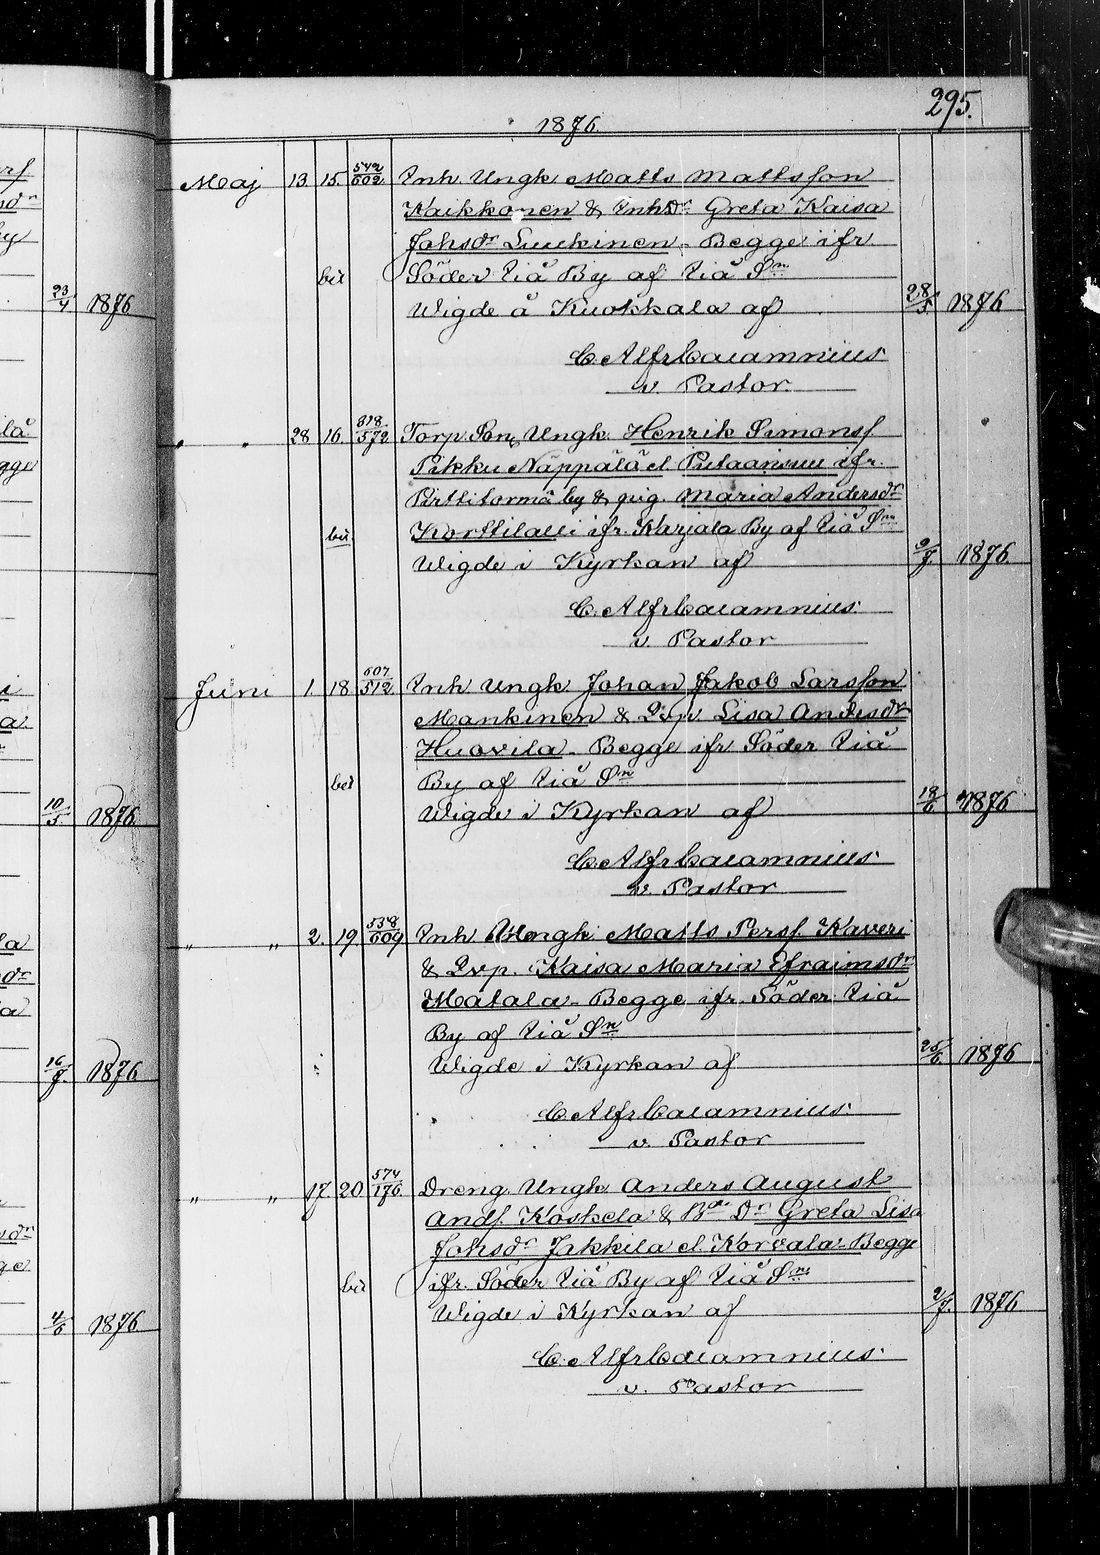 295.
1876.
Maj 13. 15. 542/602 Inh. Ungk. Matts Mattsson
Kaikkonen & InhDr. Greta Kaisa
Johsdr Luukinen - Begge ifr
Söder Liå By af Liå Sn
23/4 1876
Wigde å Kuokkala af 28/5 1876
C. Alfr Calamnius
v. Pastor.
" " 28 16. 318/572 Torp. Son, Ungk. Henrik Simonss
Pikku Näppälä el. ifr.
Pirttitörmä by & pig. Maria Andersdr
ifr. Karjala By af Liå Sn
Wigde i Kyrkan af 9/7. 1876.
C. Alfr Calamnius.
v. Pastor
Juni 1. 18 607/512 Inh Ungk. Johan Jakob Larsson
Mankinen & Dvp. Lisa Andersdr
Huovila - Begge ifr Söder Liå
By af Liå Sn
10/5 1876
Wigde i Kyrkan af 18/6 1876
C. Alfr Calamnius.
v. Pastor
" " 2. 19 538/609 Inh Ungk. Matts Perss. Kaveri
& Dvp. Kaisa Maria Efraimsdr
Matala - Begge ifr. Söder Liå
By af Liå Sn
16/7. 1876
Wigde i Kyrkan af 25/6. 1876
C. Alfr Calamnius.
v. Pastor
" " 17 20 574/176 Dreng Ungk. Anders August
Ands. Koskela & Bde Dr Greta Lisa
Johsdr Jakkila el. Korvala - Begge
ifr. Söder Liå By af Liå Sn
4/6 1876
Wigde i Kyrkan af 2/7. 1876
C. Alfr Calamnius.
v. Pastor